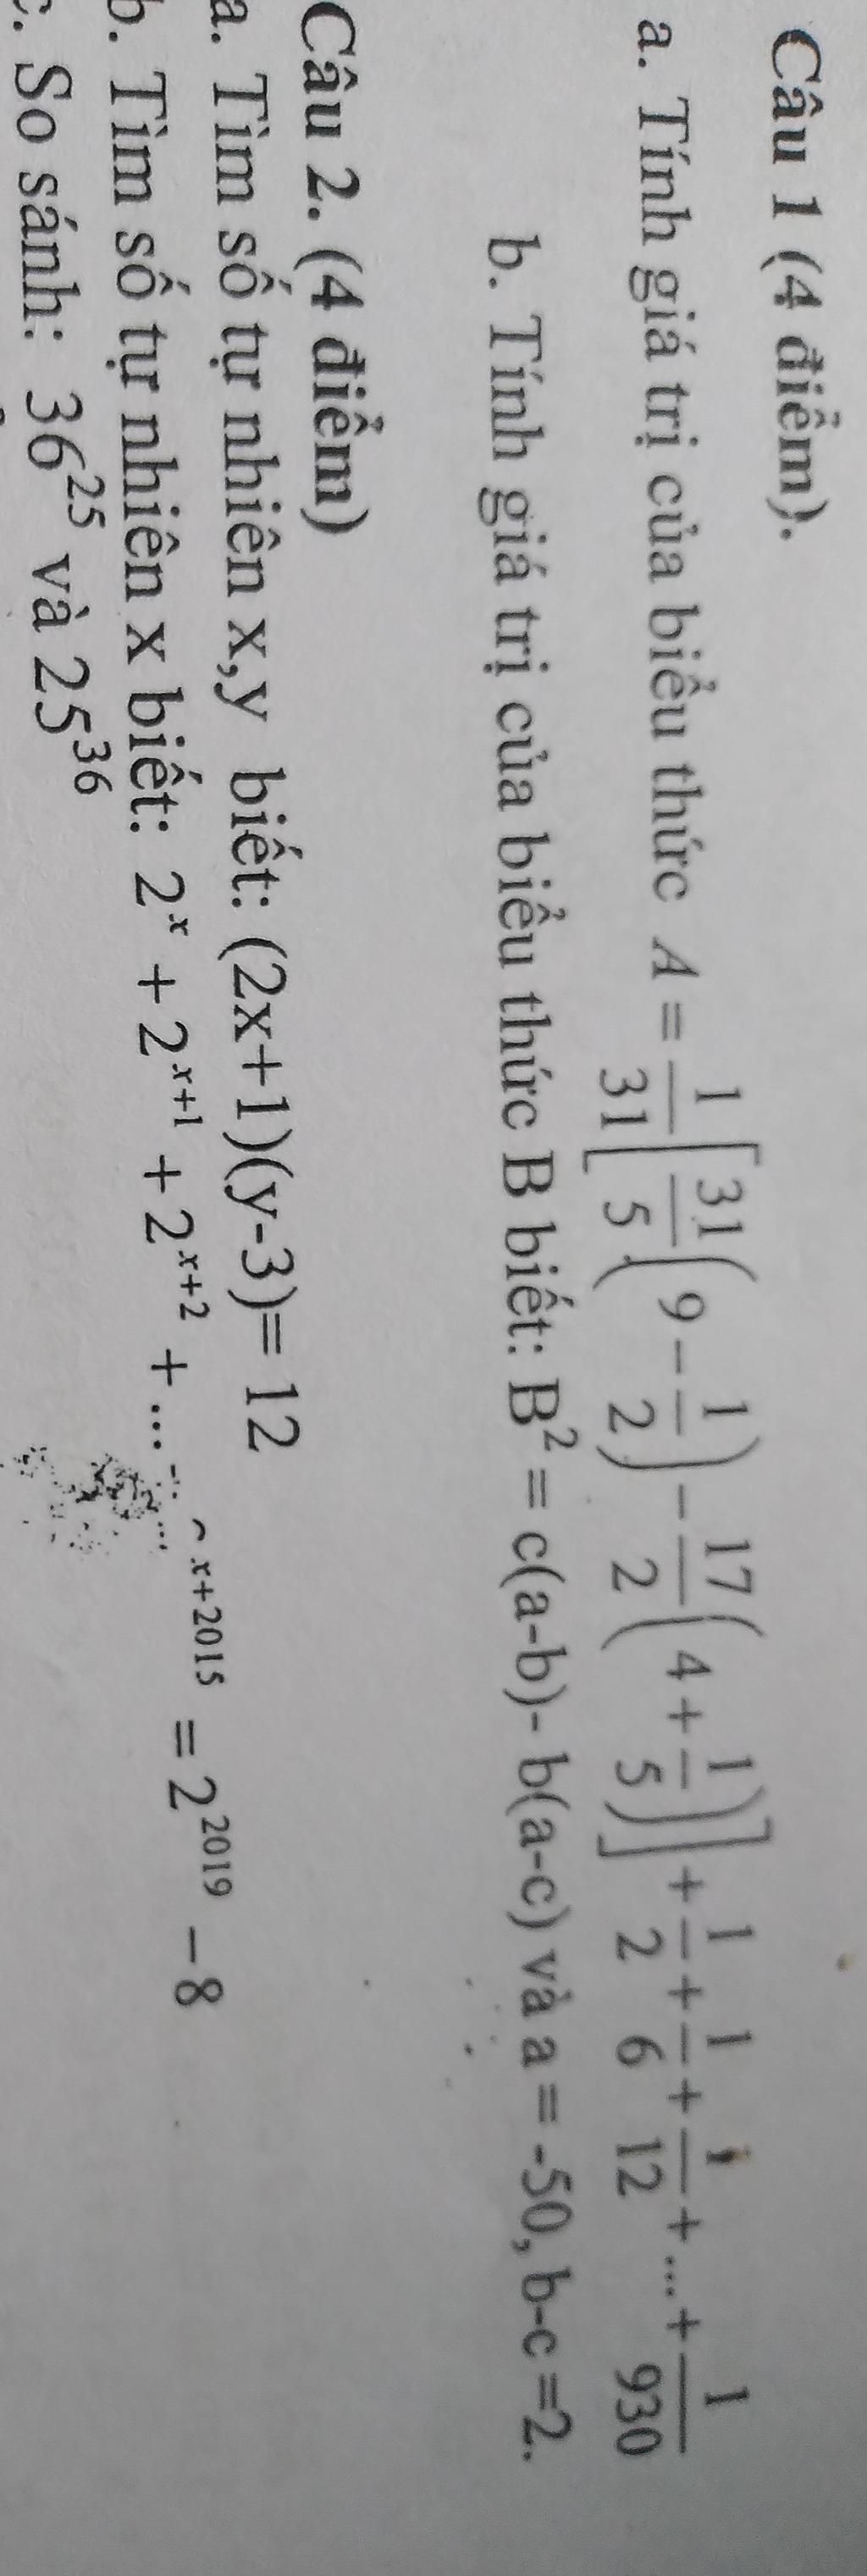 Câu 1 (4 điểm).
a. Tính giá trị của biểu thức A = \frac{1}{31}\left[\frac{31}{5}\left(9-\frac{1}{2}\right)-\frac{17}{2}\left(4+\frac{1}{5}\right)\right]+\frac{1}{2}+\frac{1}{6}+\frac{1}{12}+...+\frac{1}{930}
b. Tính giá trị của biểu thức B biết: B² = c(a-b)- b(a-c) và a = -50, b-c =2.
Câu 2. (4 điểm)
a. Tìm số tự nhiên x,y biết: (2x+1)(y-3)= 12
b. Tìm số tự nhiên x biết: 2^{x} + 2^{x+1} + 2^{x+2} + ... ^{x+2015} = 2^{2019} − 8
c. So sánh: 36^{25} và 25^{36}